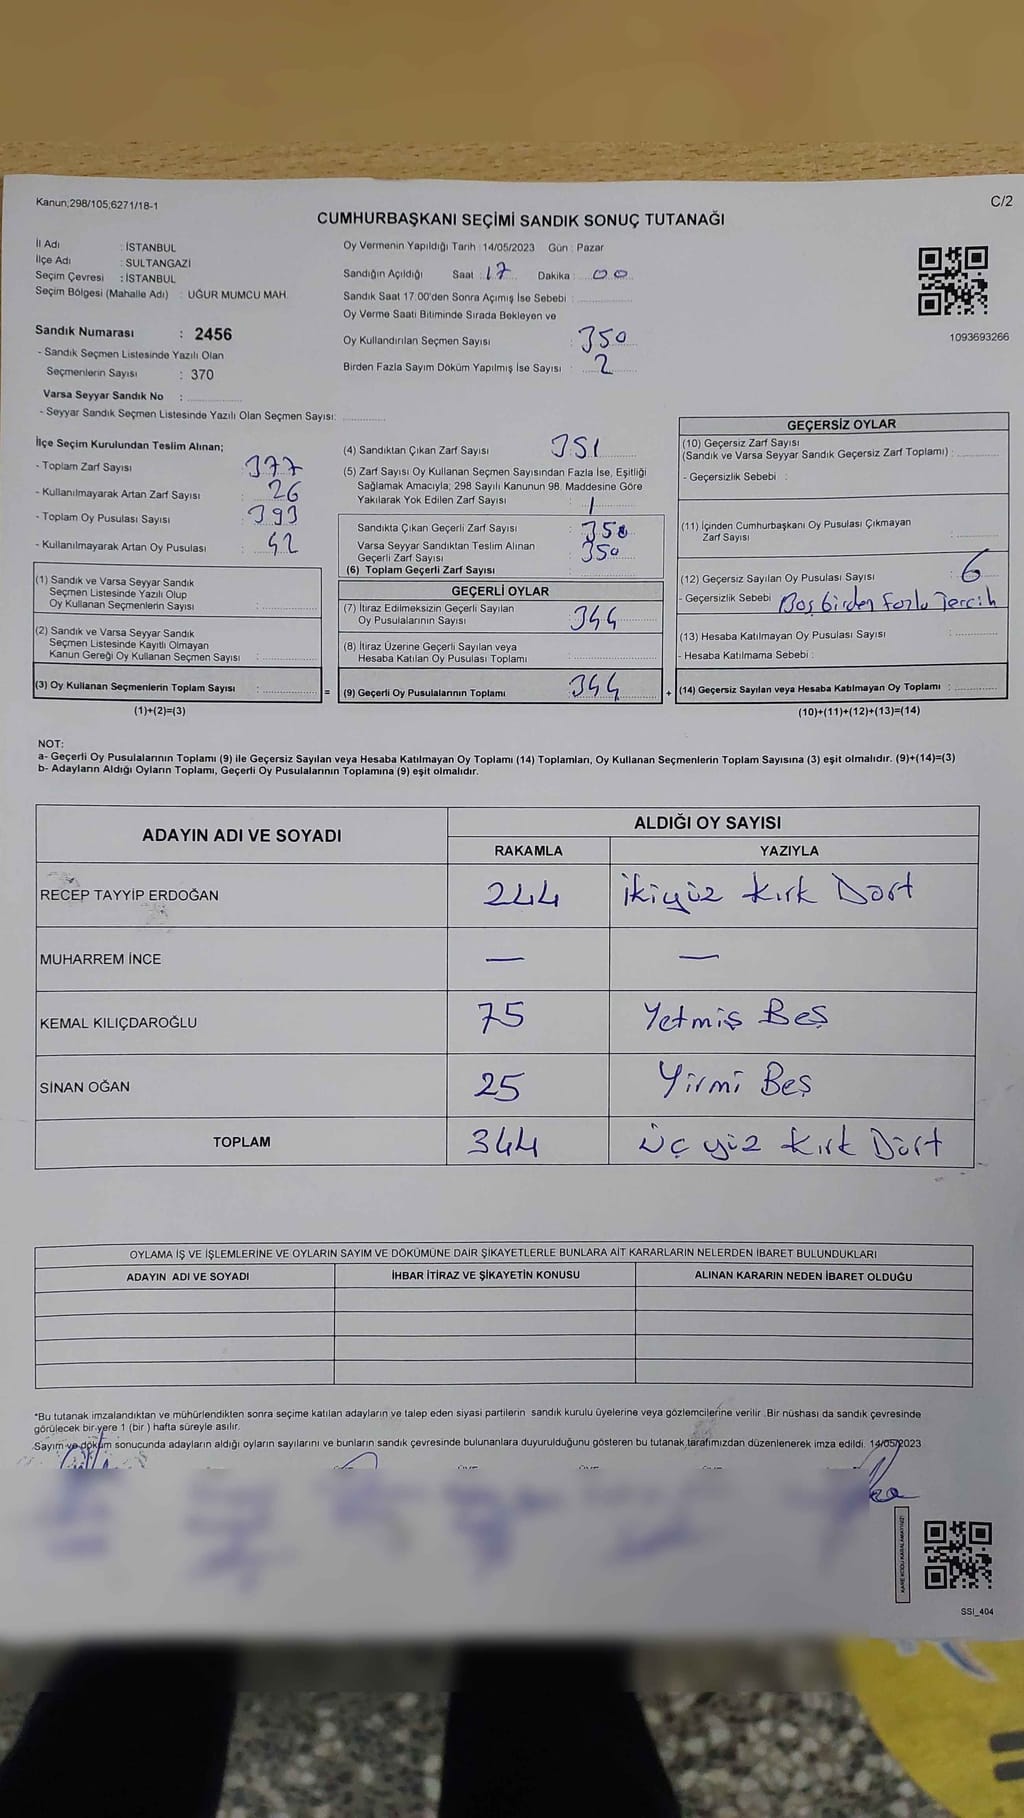 Kanun;298/105;6271/18-1
C/2
CUMHURBAŞKANI SEÇİMİ SANDIK SONUÇ TUTANAĞI
İl Adı : İSTANBUL
İlçe Adı : SULTANGAZİ
Seçim Çevresi : İSTANBUL
Seçim Bölgesi (Mahalle Adı) : UĞUR MUMCU MAH.
Sandık Numarası : 2456
- Sandık Seçmen Listesinde Yazılı Olan
Seçmenlerin Sayısı : 370
Varsa Seyyar Sandık No :
- Seyyar Sandık Seçmen Listesinde Yazılı Olan Seçmen Sayısı:
Oy Vermenin Yapıldığı Tarih : 14/05/2023 Gün : Pazar
Sandığın Açıldığı Saat : 17 Dakika : 00
Sandık Saat 17.00'den Sonra Açımış İse Sebebi :
Oy Verme Saati Bitiminde Sırada Bekleyen ve
Oy Kullandırılan Seçmen Sayısı : 350
Birden Fazla Sayım Döküm Yapılmış İse Sayısı : 2
1093693266
İlçe Seçim Kurulundan Teslim Alınan;
- Toplam Zarf Sayısı : 377
- Kullanılmayarak Artan Zarf Sayısı : 26
- Toplam Oy Pusulası Sayısı : 393
- Kullanılmayarak Artan Oy Pusulası : 42
(1) Sandık ve Varsa Seyyar Sandık
Seçmen Listesinde Yazılı Olup
Oy Kullanan Seçmenlerin Sayısı :
(2) Sandık ve Varsa Seyyar Sandık
Seçmen Listesinde Kayıtlı Olmayan
Kanun Gereği Oy Kullanan Seçmen Sayısı :
(3) Oy Kullanan Seçmenlerin Toplam Sayısı :
(1)+(2)=(3)
(4) Sandıktan Çıkan Zarf Sayısı : 351
(5) Zarf Sayısı Oy Kullanan Seçmen Sayısından Fazla İse, Eşitliği
Sağlamak Amacıyla; 298 Sayılı Kanunun 98. Maddesine Göre
Yakılarak Yok Edilen Zarf Sayısı : 1
Sandıkta Çıkan Geçerli Zarf Sayısı : 350
Varsa Seyyar Sandıktan Teslim Alınan
Geçerli Zarf Sayısı : 350
(6) Toplam Geçerli Zarf Sayısı :
GEÇERLİ OYLAR
(7) İtiraz Edilmeksizin Geçerli Sayılan
Oy Pusulalarının Sayısı : 344
(8) İtiraz Üzerine Geçerli Sayılan veya
Hesaba Katılan Oy Pusulası Toplamı :
= (9) Geçerli Oy Pusulalarının Toplamı : 344
GEÇERSİZ OYLAR
(10) Geçersiz Zarf Sayısı
(Sandık ve Varsa Seyyar Sandık Geçersiz Zarf Toplamı) :
- Geçersizlik Sebebi :
(11) İçinden Cumhurbaşkanı Oy Pusulası Çıkmayan
Zarf Sayısı :
(12) Geçersiz Sayılan Oy Pusulası Sayısı : 6
- Geçersizlik Sebebi : Boş birden fazla Tercih
(13) Hesaba Katılmayan Oy Pusulası Sayısı :
- Hesaba Katılmama Sebebi :
+ (14) Geçersiz Sayılan veya Hesaba Katılmayan Oy Toplamı :
(10)+(11)+(12)+(13)=(14)
NOT:
a- Geçerli Oy Pusulalarının Toplamı (9) ile Geçersiz Sayılan veya Hesaba Katılmayan Oy Toplamı (14) Toplamları, Oy Kullanan Seçmenlerin Toplam Sayısına (3) eşit olmalıdır. (9)+(14)=(3)
b- Adayların Aldığı Oyların Toplamı, Geçerli Oy Pusulalarının Toplamına (9) eşit olmalıdır.
ADAYIN ADI VE SOYADI
ALDIĞI OY SAYISI
RAKAMLA YAZIYLA
RECEP TAYYİP ERDOĞAN 244 İkiyüz Kırk Dört
MUHARREM İNCE — —
KEMAL KILIÇDAROĞLU 75 Yetmiş Beş
SİNAN OĞAN 25 Yirmi Beş
TOPLAM 344 üç yüz Kırk Dört
OYLAMA İŞ VE İŞLEMLERİNE VE OYLARIN SAYIM VE DÖKÜMÜNE DAİR ŞİKAYETLERLE BUNLARA AİT KARARLARIN NELERDEN İBARET BULUNDUKLARI
ADAYIN ADI VE SOYADI İHBAR İTİRAZ VE ŞİKAYETİN KONUSU ALINAN KARARIN NEDEN İBARET OLDUĞU
*Bu tutanak imzalandıktan ve mühürlendikten sonra seçime katılan adayların ve talep eden siyasi partilerin sandık kurulu üyelerine veya gözlemcilerine verilir .Bir nüshası da sandık çevresinde
görülecek bir yere 1 (bir ) hafta süreyle asılır.
Sayım ve döküm sonucunda adayların aldığı oyların sayılarını ve bunların sandık çevresinde bulunanlara duyurulduğunu gösteren bu tutanak tarafımızdan düzenlenerek imza edildi. 14/05/2023
KARE KODU KARALAMAYINIZ!
SSI_404